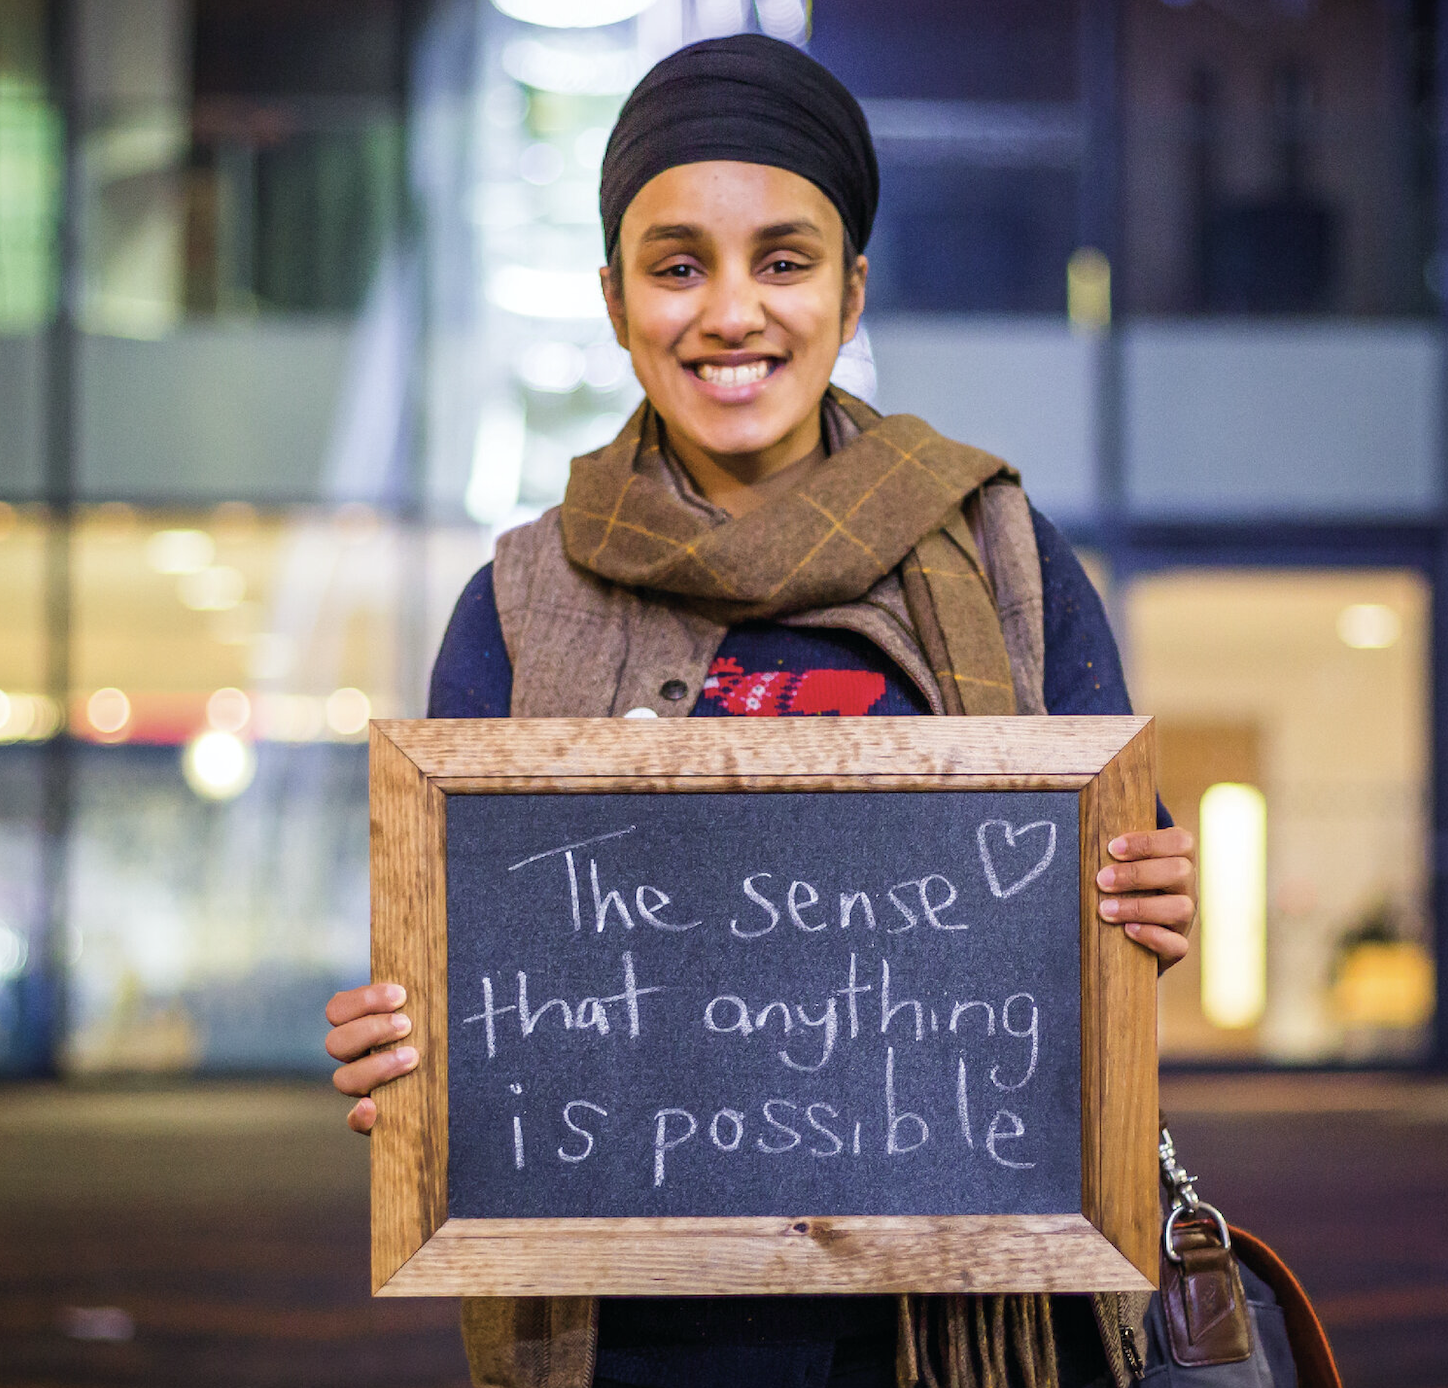 The sense
that anything
is possible